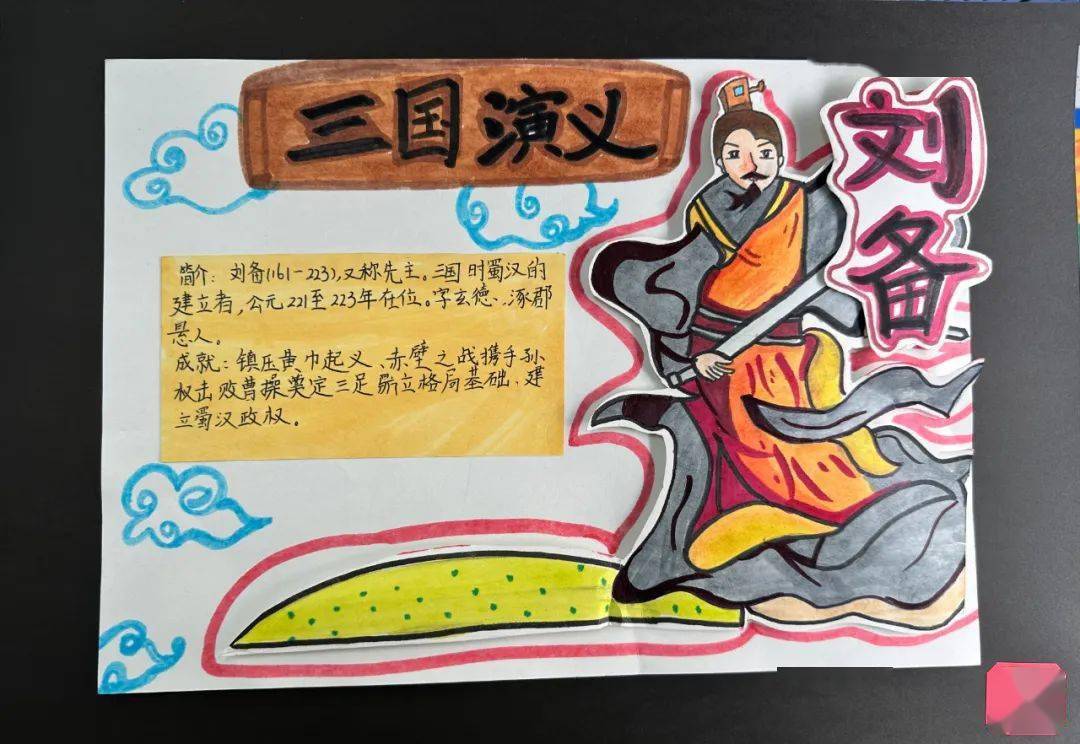 三国演义
刘备
简介：刘备(161-223),又称先主。三国时蜀汉的
建立者,公元221至223年在位。字玄德、涿郡
悬人。
成就：镇压黄巾起义、赤壁之战携手孙
权击败曹操奠定三足鼎立格局基础、建
立蜀汉政权。